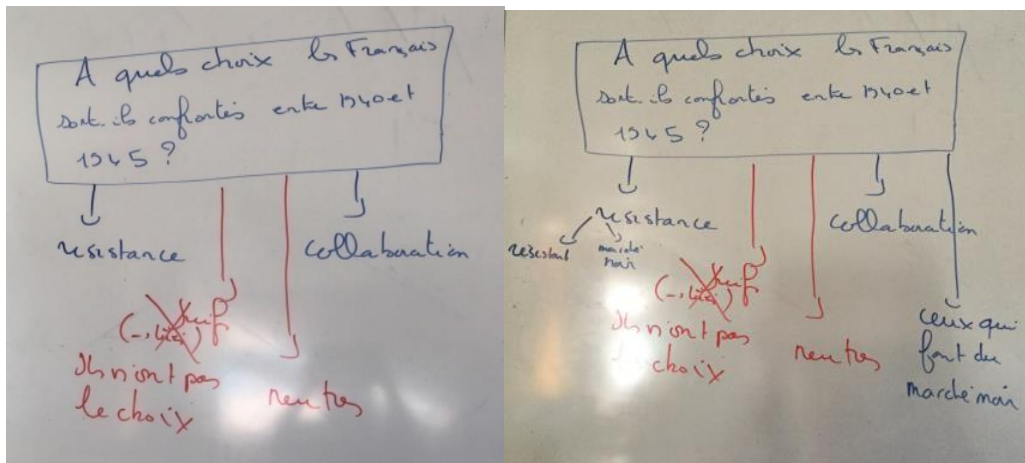 A quels choix les Français
sont-ils confrontés entre 1940 et
1945 ?
resistance
collaboration
Juif
Ils n'ont pas
le choix
neutres
A quels choix les Français
sont-ils confrontés entre 1940 et
1945 ?
resistance
collaboration
resistant
marché
noir
Juif
Ils n'ont pas
choix
neutres
ceux qui
font du
marché noir